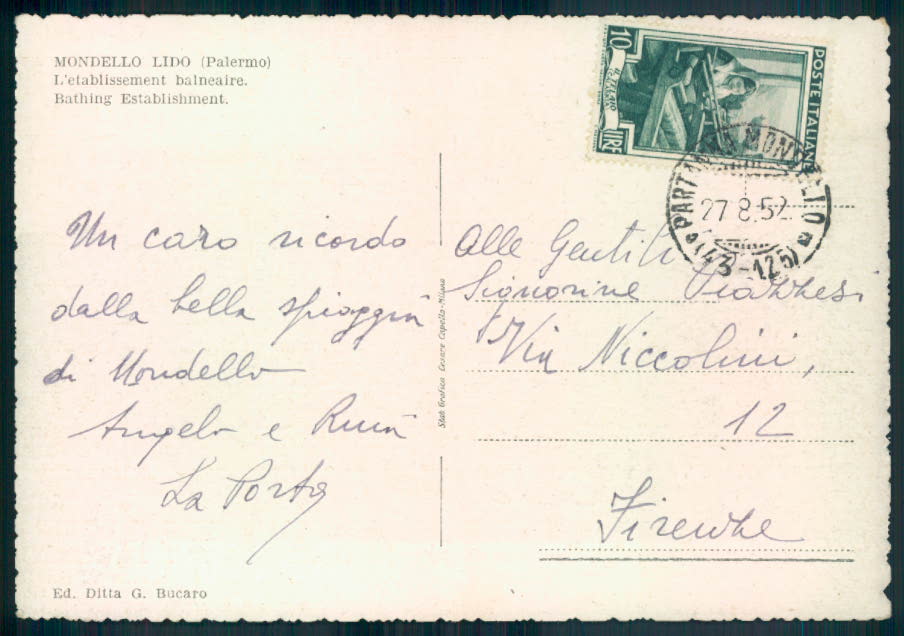 MONDELLO LIDO (Palermo)
L'etablissement balneaire.
Bathing Establishment.
10 LIRE
POSTE ITALIANE
PARTANNA MONDELLO
27.8.52.
(43-125)
Un caro ricordo
dalla bella spiaggia
di Mondello
Angelo e
La Porta
Alle Gentili
Signorine
Via Niccolini,
12
Firenze
Stab. Grafico Cesare Capello-Milano
Ed. Ditta G. Bucaro